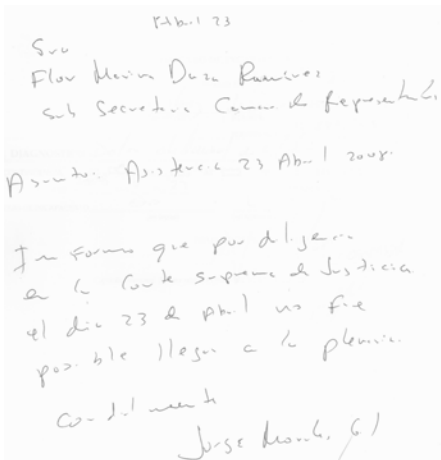 Abril 23
Sra
Flor Marina Daza Ramirez
Sub Secretaria Camara de Representantes
Asunto: Asistencia 23 Abril 2008.
Informo que por diligencia
en la Corte Suprema de Justicia
el dia 23 de Abril no fue
posible llegar a la plenaria.
Cordialmente
Jorge Morales G.